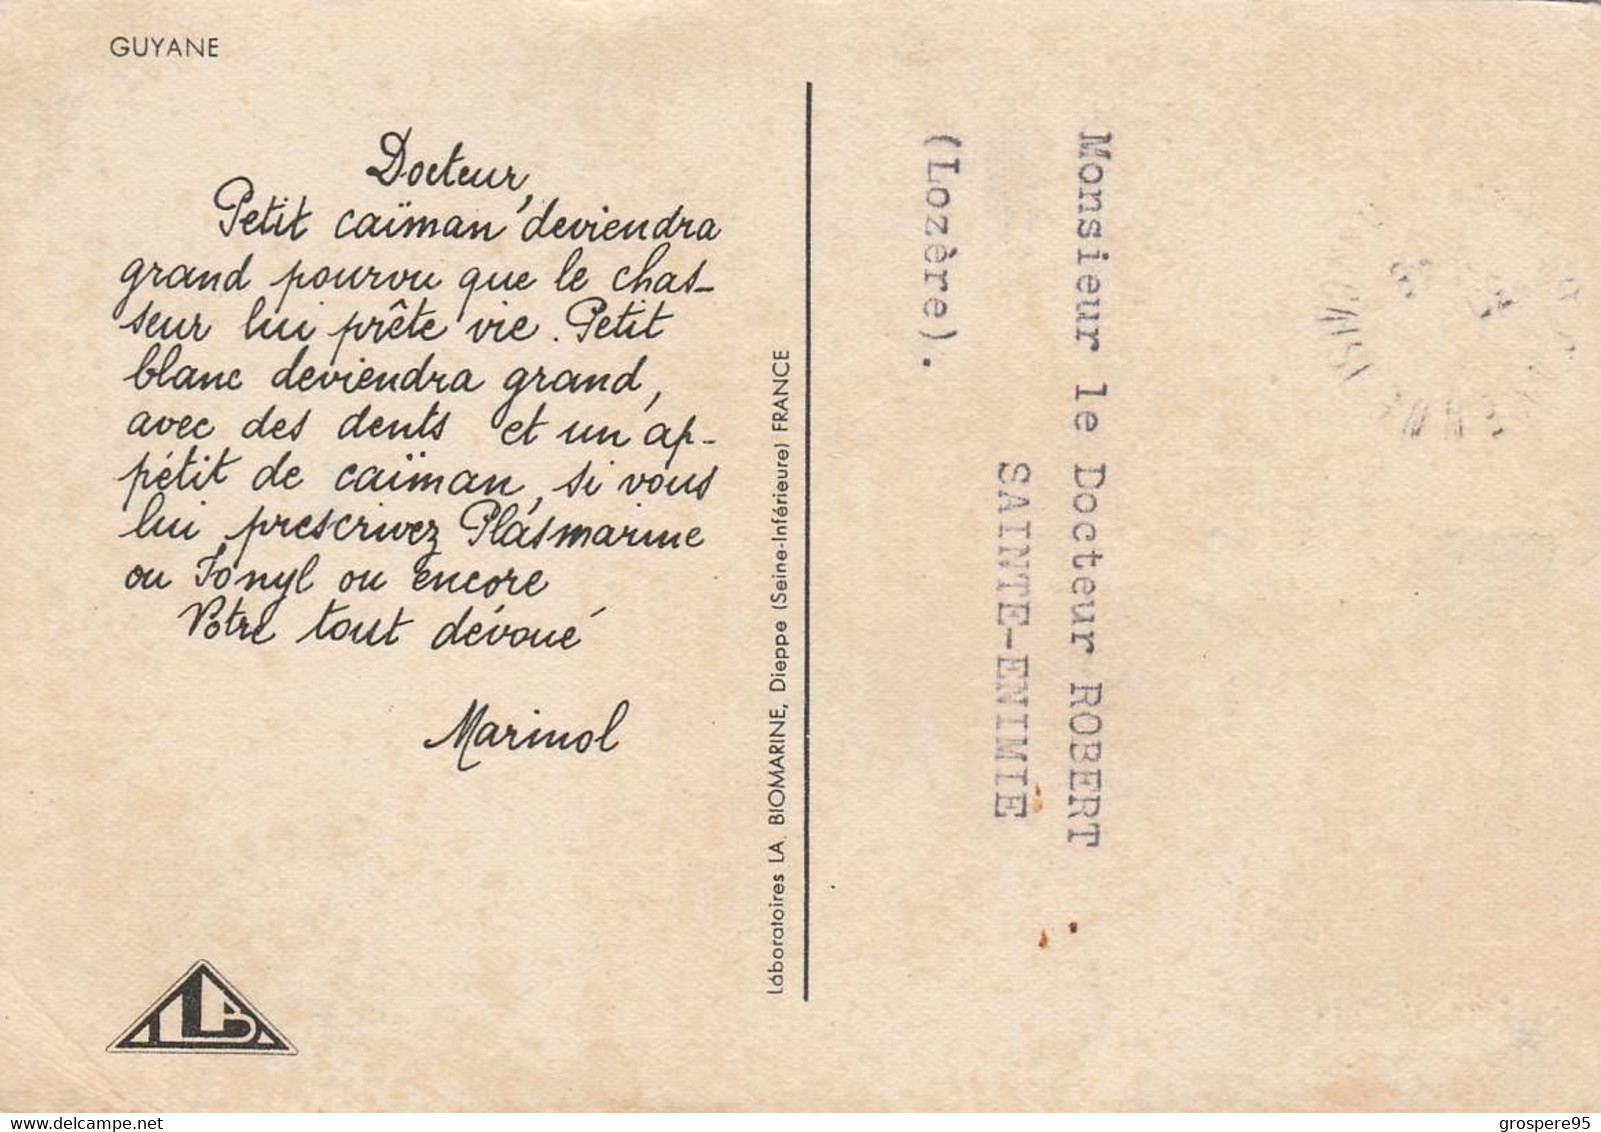 GUYANE
Docteur,
Petit caïman deviendra
grand pourvu que le chas-
seur lui prête vie. Petit
blanc deviendra grand,
avec des dents et un ap-
pétit de caïman, si vous
lui prescrivez Plasmarine
ou Ionyl ou encore
Votre tout dévoué
Marinol
LAB
Laboratoires LA BIOMARINE, Dieppe (Seine-Inférieure) FRANCE
Monsieur le Docteur ROBERT
SAINTE-ENIMIE
(Lozère).
grospere95